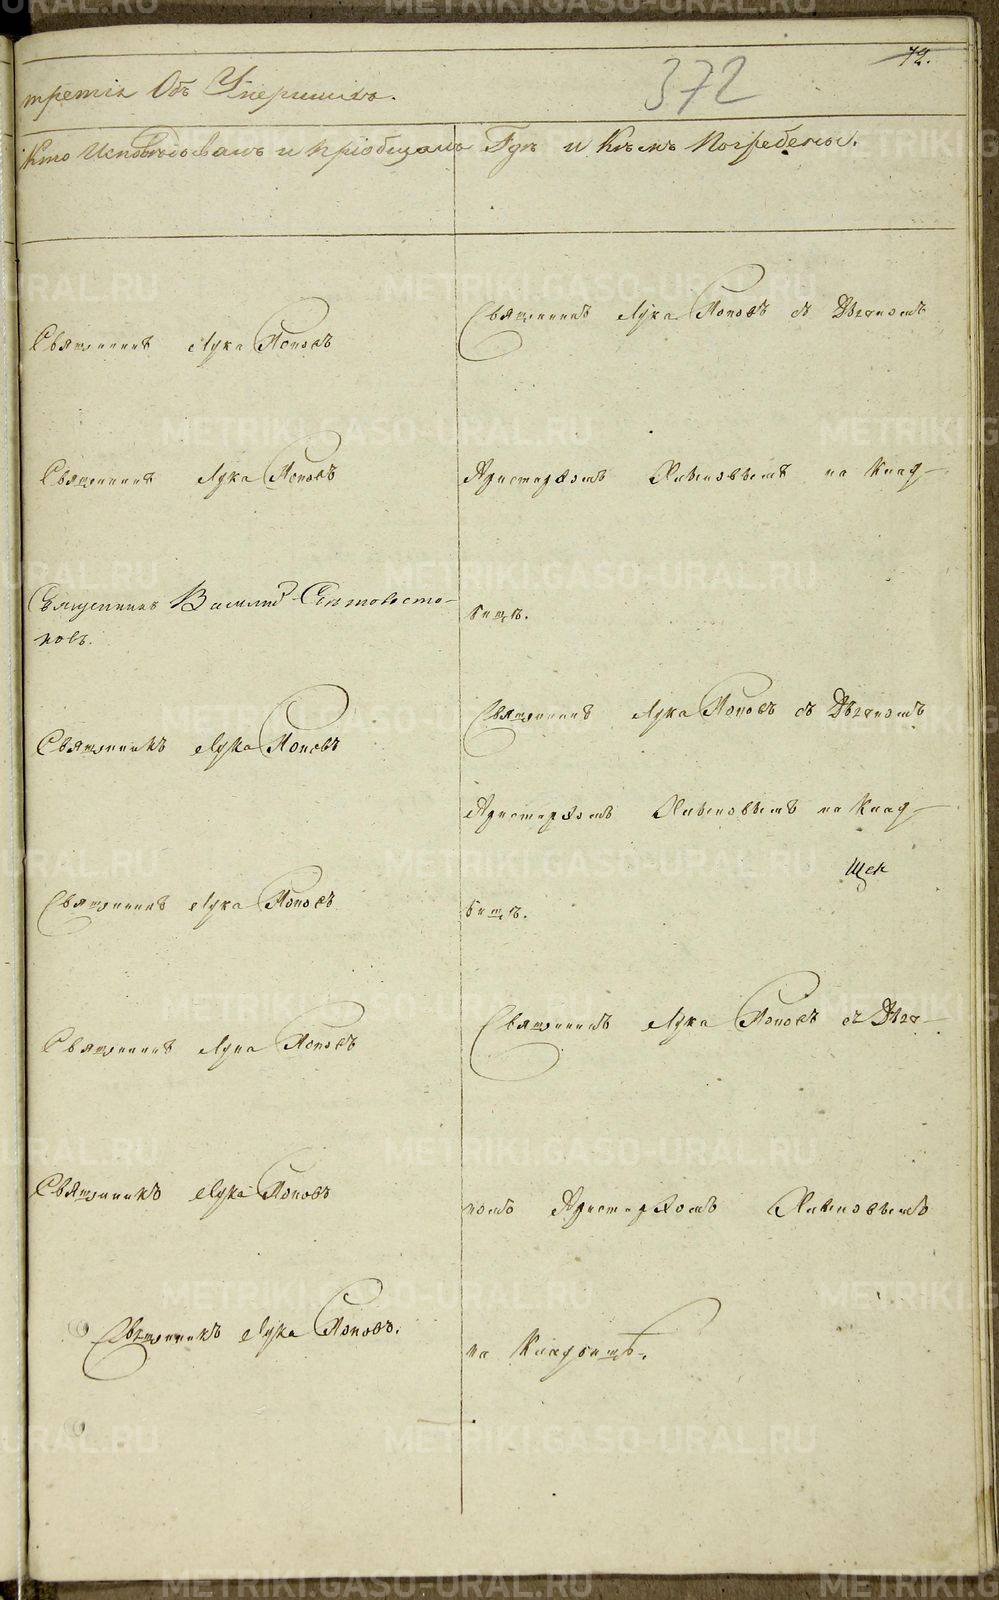 72.
372
третія Объ Умершихъ.
Кто Исповѣдовалъ и пріобщалъ
Гдѣ и Кѣмъ Погребены.
Священникъ Лука Поповъ
Священникъ Лука Поповъ
Священникъ Василій
повъ.
Священникъ Лука Поповъ
Священникъ Лука Поповъ
Священникъ Лука Поповъ
Священникъ Лука Поповъ
Священникъ Лука Поповъ.
Священникъ Лука Поповъ съ Дьячкомъ
Аристархомъ на Клад-
бищѣ.
Священникъ Лука Поповъ съ Дьячкомъ
Аристархомъ на Клад-
бищѣ.
Священникъ Лука Поповъ съ Дьяч-
комъ Аристархомъ
на Кладбищѣ.
METRIKI.GASO-URAL.RU